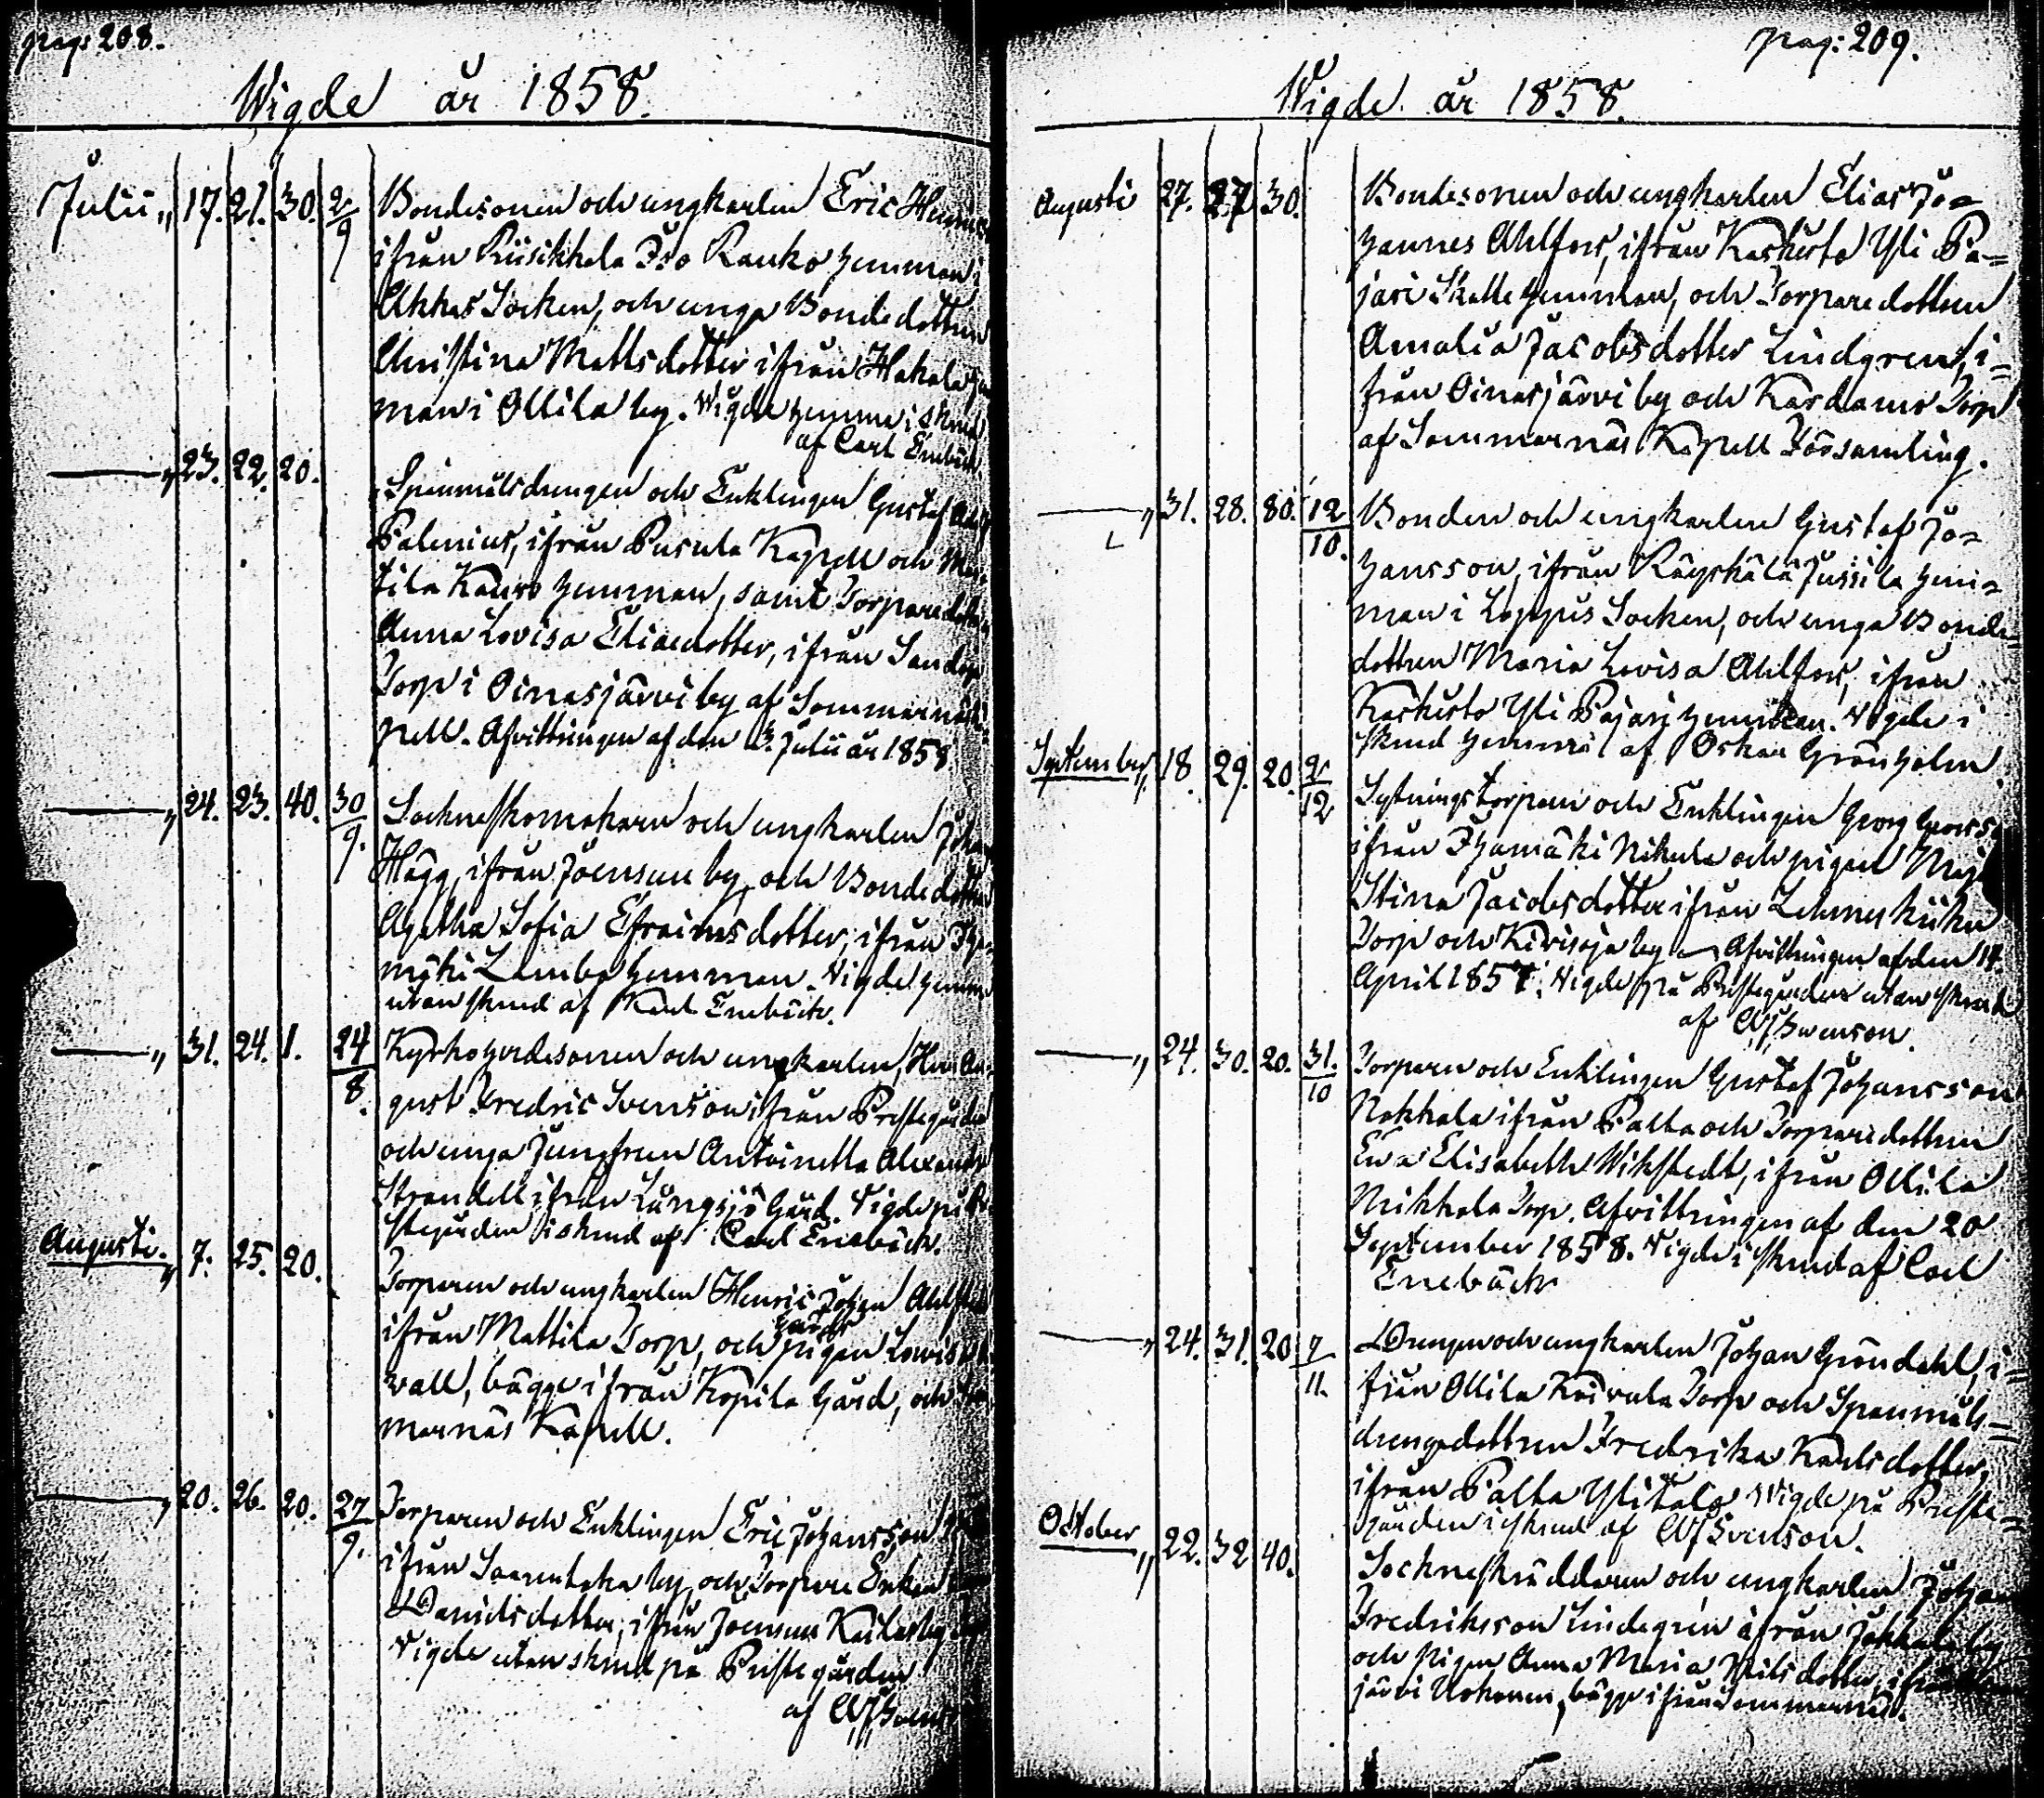 pag: 208.
Wigde år 1858.
Julii „ 17. 21. 30. 2/9 Bondesonen och ungkarlen Eric
ifrån Riisikkala Iso Rauko hemman i
Akkas Socken, och unga Bondedottren
Christina Mattsdotter ifrån Hakala
man i Ollila by. Wigde hemma i skrud
af Carl Enebäck
„ 23. 22. 20. Spinnmålsdrengen och Enklingen Gustaf
Palenius, ifrån Pusula Kapell och
tila Kauro hemman, samt Torparedottren
Anna Lovisa Eliaedotter, ifrån
Torp i Oinasjärvi by af Sommarnäs
pell. Afvittringen af den 3. Julii år 1858.
„ 24. 23. 40. 30/9. Socknskomakarn och ungkarlen
Hägg, ifrån Joensuu by, och Bondedottren
Agatha Sofia Efraimsdotter, ifrån
mäki Lemba hemman. Wigde hemma
utan skrud af Karl Enebäck.
„ 31. 24. 1. 24/8. Kyrkoherdesonen och ungkarlen, Herr Au-
gust Fredric Svenson ifrån Prestegården
och unga Jungfrun Antoinetta Alexandra
Strandell ifrån Långsjö Gård. Vigde på
stegården i skrud af Carl Enebäck.
Augusti. „ 7. 25. 20. Torparen och ungkarlen Henric Johan
ifrån Mattila Torp, och pigan Lovisa
wall, bägge ifrån Kopila Gård, och
marnäs Kapell.
„ 20. 26. 20. 27/9. Torparen och Enklingen Eric Johansson
ifrån Saarentaka by, och Torpare Enkan
Danielsdotter, ifrån Joensuu
Vigde utan skrud på Prestegården
af
pag: 209.
Wigde år 1858.
Augusti 27. 27 30. Bondesonen och ungkarlen Elias Jo=
hannes Ahlfors, ifrån Kaskisto Yli Pa=
jari Skatte hemman, och Torparedottren
Amalia Jacobsdotter Lindgren, i=
från Oinasjärvi by och Kardams Torp
af Sommarnäs Kapell Församling.
„ 31. 28. 80. 12/10. Bonden och ungkarlen Gustaf Jo=
hansson, ifrån Räyskälä Jussila hem=
man i Loppis Socken, och unga Bonde=
dottren Maria Lovisa Ahlfors, ifrån
Kaskisto Yli Pajari hemman. Vigde i
skrud hemma af Oskar Grönholm
September „ 18 29. 20. 2/12 Sytningstorparen och Enklingen Georg
ifrån Ihamäki Nikula och pigan Maja
Stina Jacobsdotter ifrån
Torp och Kivisoja by Afvittringen af den 14.
April 1857. Vigde på Prestegården utan skrud
af Svenson.
„ 24. 30. 20. 31./10 Torparen och Enklingen Gustaf Johansson
Nokkala ifrån Palta och Torparedottren
Eva Elisabeth Wikstedt, ifrån Ollila
Mikkola Torp. Afvittringen af den 20
September 1858. Vigde i skrud af Carl
Enebäck
„ 24. 31. 20 7/11. Drengen och ungkarlen Johan Gröndahl, i=
från Ollila Torp och Spanmåls=
drengedottren Fredrika Karlsdotter,
ifrån Palta Ylitalo Vigde på Preste=
gården i skrud af Svenson.
October „ 22. 32 40. Socknskräddaren och ungkarlen Johan
Fredriksson Lindegrén ifrån Jakkula by
och Pigan Anna Maria Nilsdotter,
järvi bägge ifrån Sommarnäs.